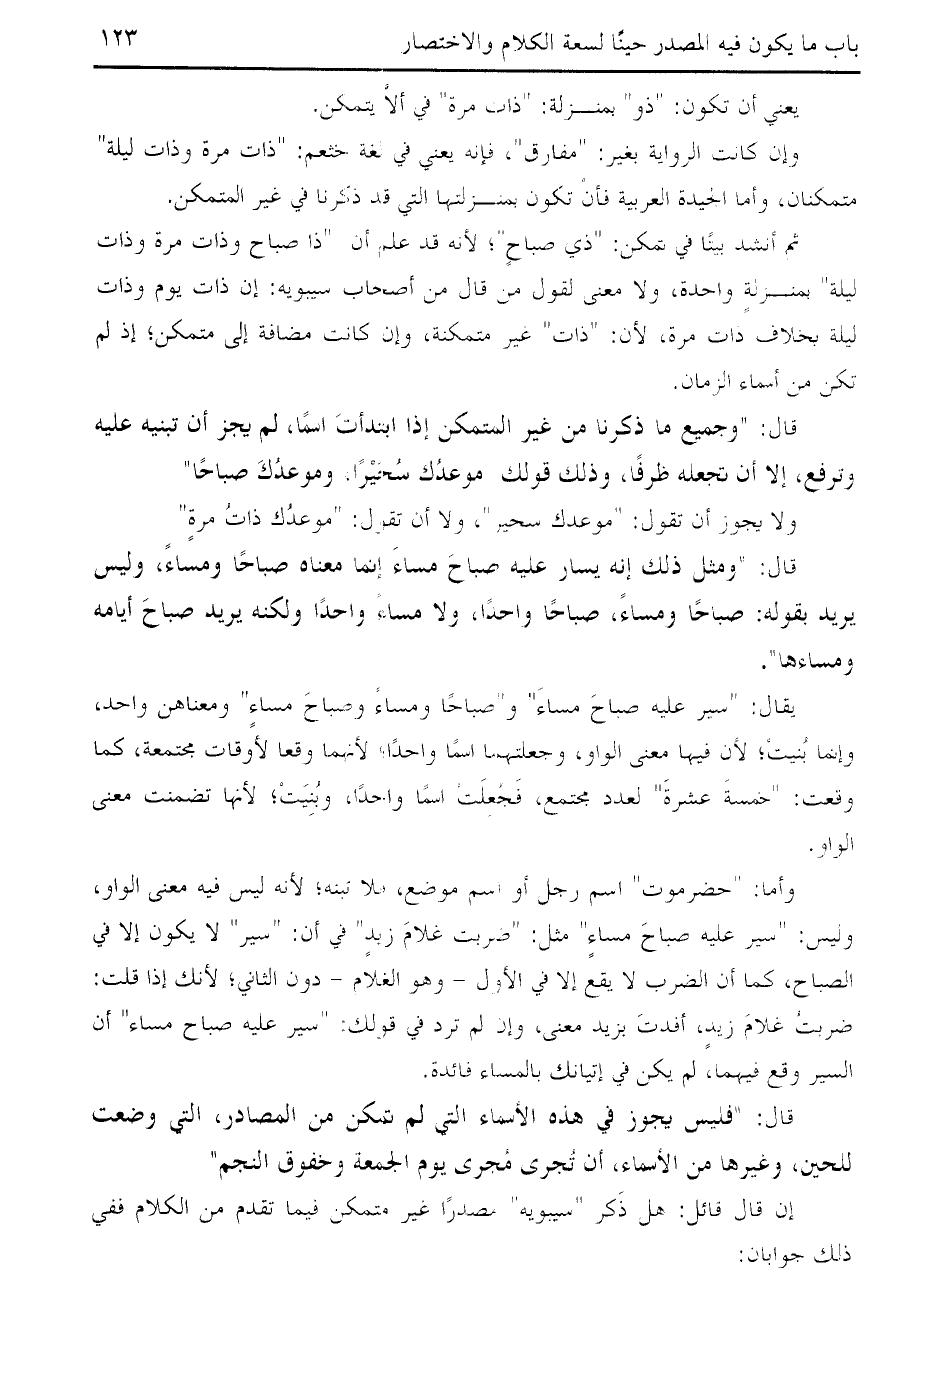 باب ما يكون فيه المصدر حينًا لسعة الكلام والاختصار ١٢٣
يعني أن تكون: "ذو" بمنـزلة: "ذات مرة" في ألاَّ يتمكن.
وإن كانت الرواية بغير: "مفارق"، فإنه يعني في لغة خثعم: "ذات مرة وذات ليلة"
متمكنان، وأما الجيدة العربية فأنْ تكون بمنـزلتها التي قد ذكرنا في غير المتمكن.
ثم أنشد بيتًا في تمكن: "ذي صباحٍ"؛ لأنه قد علم أن "ذا صباح وذات مرة وذات
ليلة" بمنـزلةٍ واحدة، ولا معنى لقول من قال من أصحاب سيبويه: إن ذات يوم وذات
ليلة بخلاف ذات مرة، لأن: "ذات" غير متمكنة، وإن كانت مضافة إلى متمكن؛ إذ لم
تكن من أسماء الزمان.
قال: "وجميع ما ذكرنا من غير المتمكن إذا ابتدأتَ اسمًا، لم يجز أن تبنيه عليه
وترفع، إلا أن تجعله ظرفًا، وذلك قولك موعدُك سُحَيْرًا، وموعدُكَ صباحًا"
ولا يجوز أن تقول: "موعدك سحير"، ولا أن تقول: "موعدُك ذاتُ مرةٍ"
قال: "ومثل ذلك إنه يسار عليه صباحَ مساءَ إنما معناه صباحًا ومساءً، وليس
يريد بقوله: صباحًا ومساءً، صباحًا واحدًا، ولا مساءً واحدًا ولكنه يريد صباحَ أيامه
ومساءها".
يقال: "سير عليه صباحَ مساءَ" و"صباحًا ومساءً وصباحَ مساءٍ" ومعناهن واحد،
وإنما بُنيتْ؛ لأن فيها معنى الواو، وجعلتهما اسمًا واحدًا؛ لأنهما وقعا لأوقات مجتمعة، كما
وقعت: "خمسةَ عشرةَ" لعدد مجتمع، فَجُعلَتْ اسمًا واحدًا، وبُنِيَتْ؛ لأنها تضمنت معنى
الواو.
وأما: "حضرموت" اسم رجل أو اسم موضع، فلا تبنه؛ لأنه ليس فيه معنى الواو،
وليس: "سير عليه صباحَ مساءٍ" مثل: "ضربت غلامَ زيدٍ" في أن: "سير" لا يكون إلا في
الصباح، كما أن الضرب لا يقع إلا في الأول – وهو الغلام – دون الثاني؛ لأنك إذا قلت:
ضربتُ غلامَ زيدٍ، أفدتَ بزيد معنى، وإن لم ترد في قولك: "سير عليه صباح مساء" أن
السير وقع فيهما، لم يكن في إتيانك بالمساء فائدة.
قال: "فليس يجوز في هذه الأسماء التي لم تمكن من المصادر، التي وضعت
للحين، وغيرها من الأسماء، أن تُجرى مُجرى يوم الجمعة وخفوق النجم"
إن قال قائل: هل ذَكر "سيبويه" مصدرًا غير متمكن فيما تقدم من الكلام ففي
ذلك جوابان: